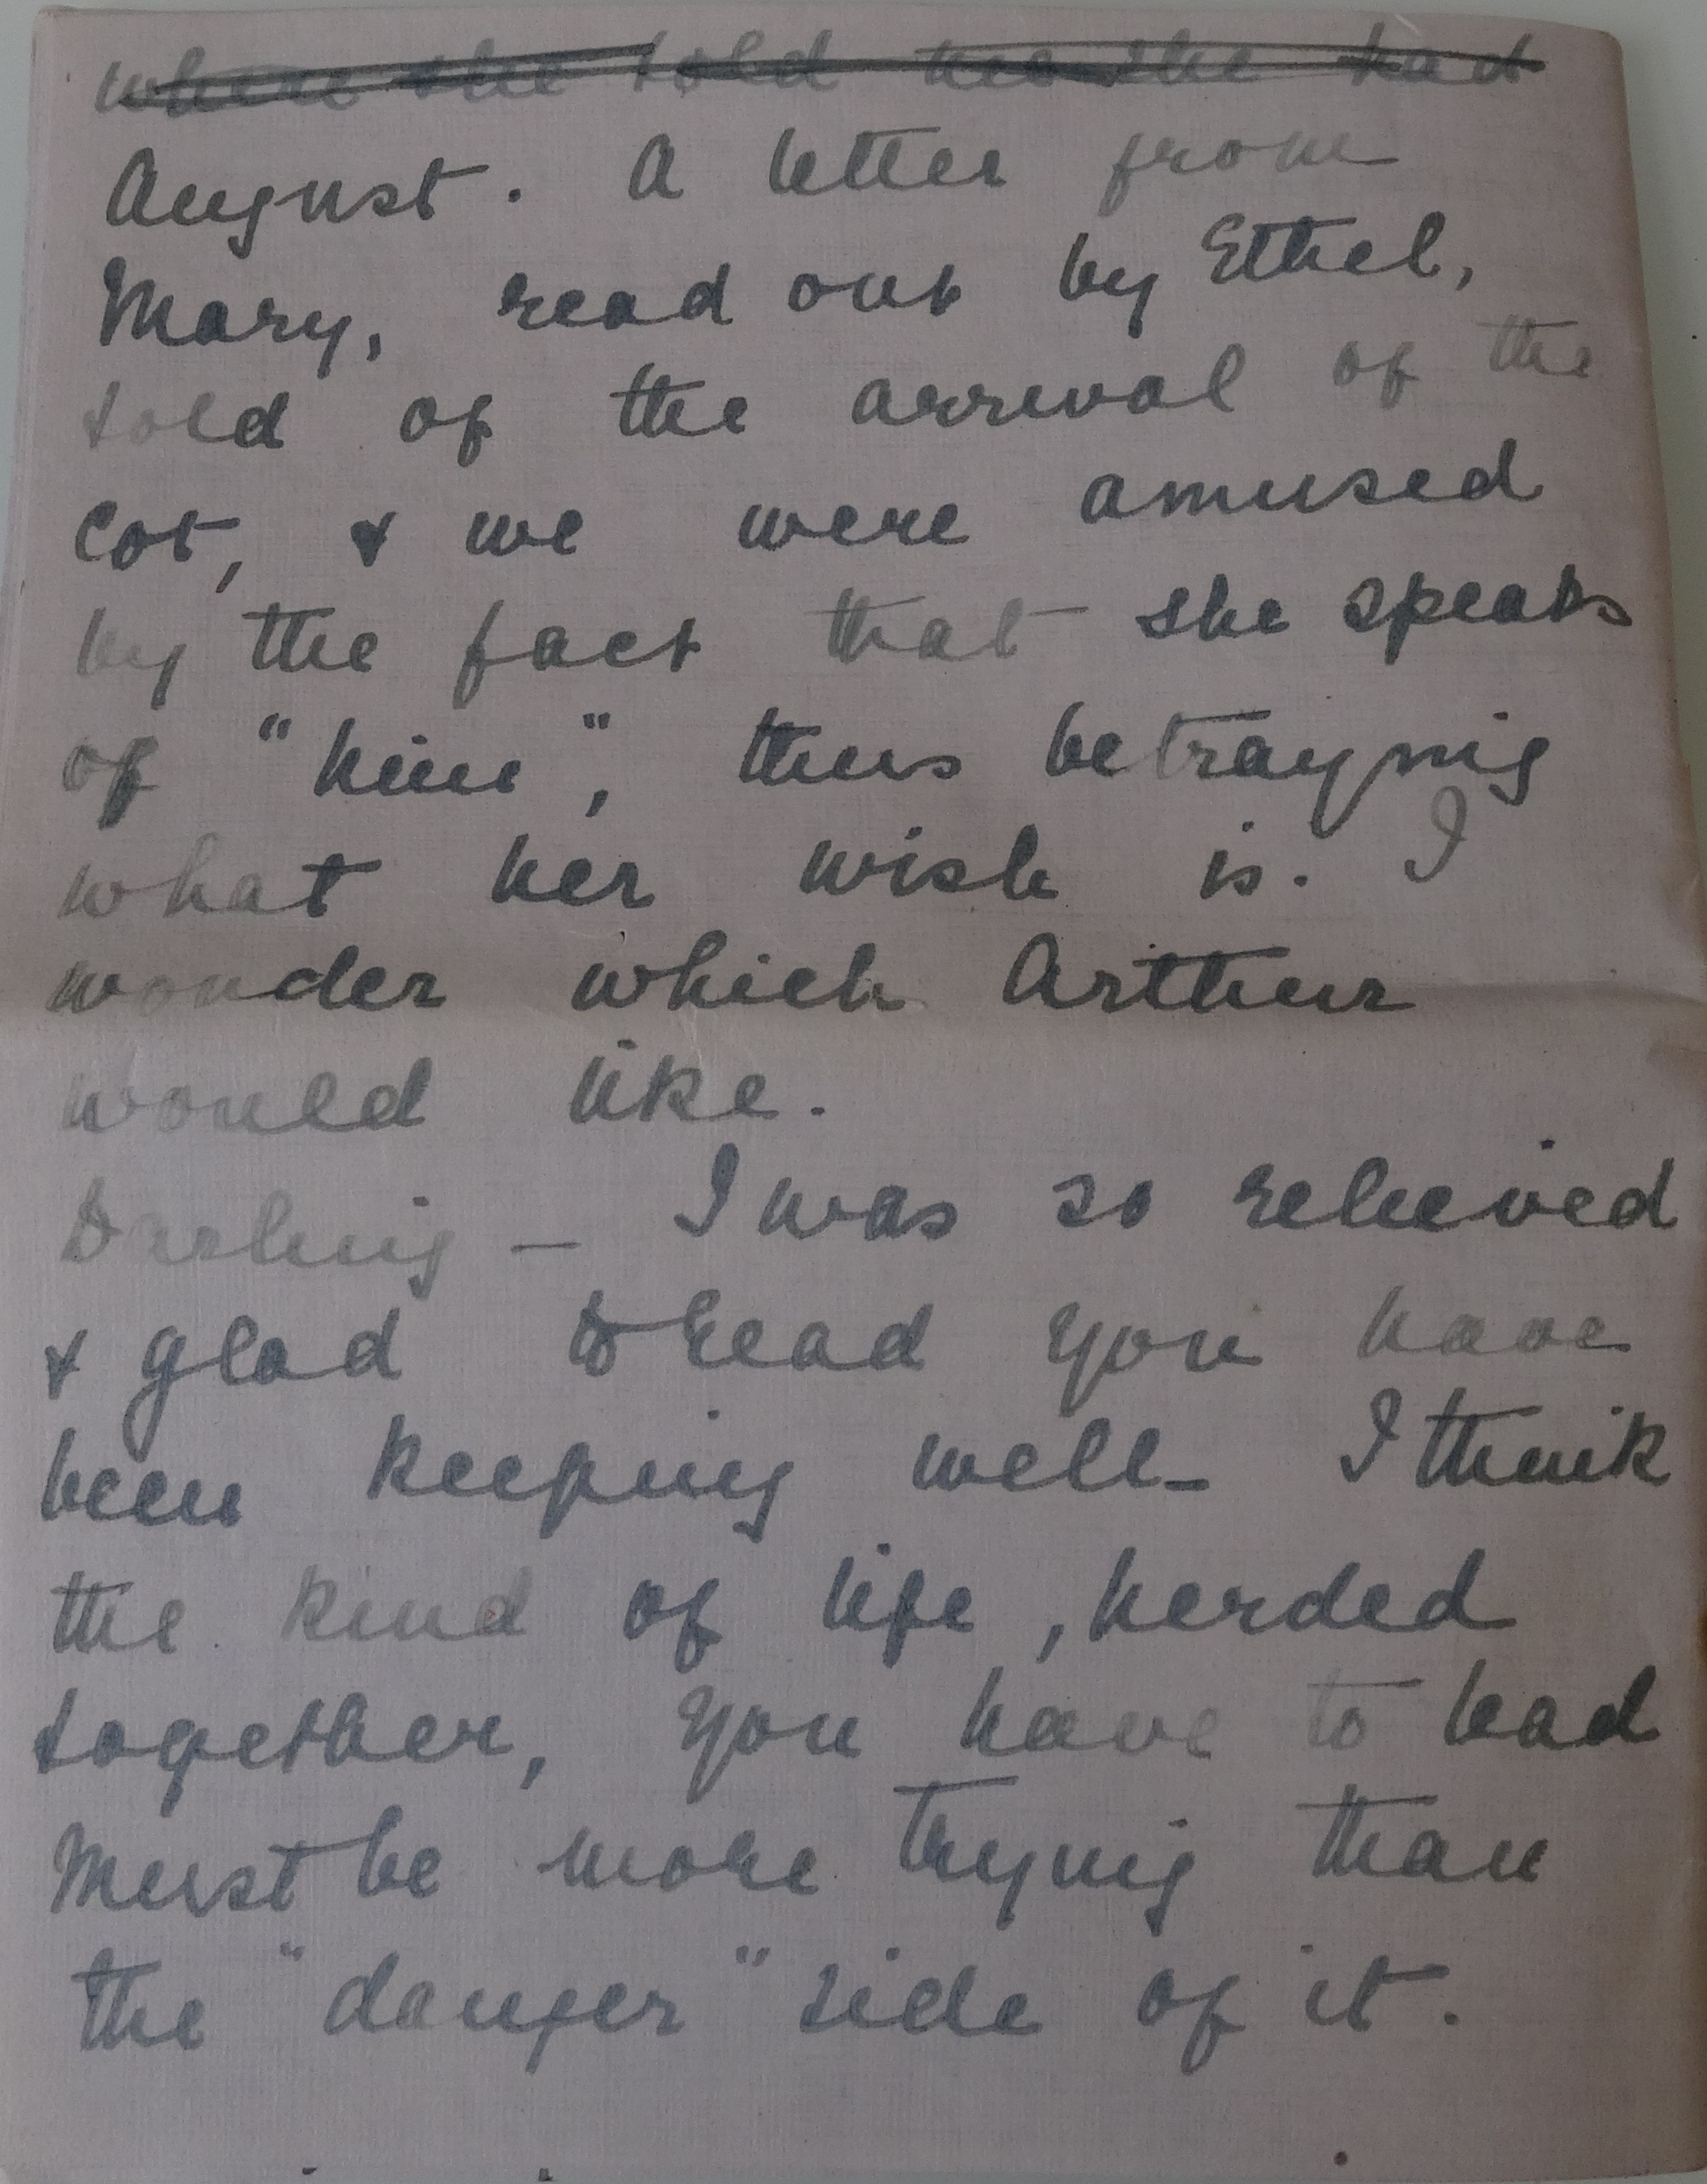 where she told me she had
August. A letter from
Mary, read out by Ethel,
told of the arrival of the
cot, & we were amused
by the fact that she speaks
of "him", thus betraying
what her wish is. I
wonder which Arthur
would like.
Darling — I was so relieved
& glad to read you have
been keeping well – I think
the kind of life, herded
together, you have to lead
must be more trying than
the "danger" side of it.